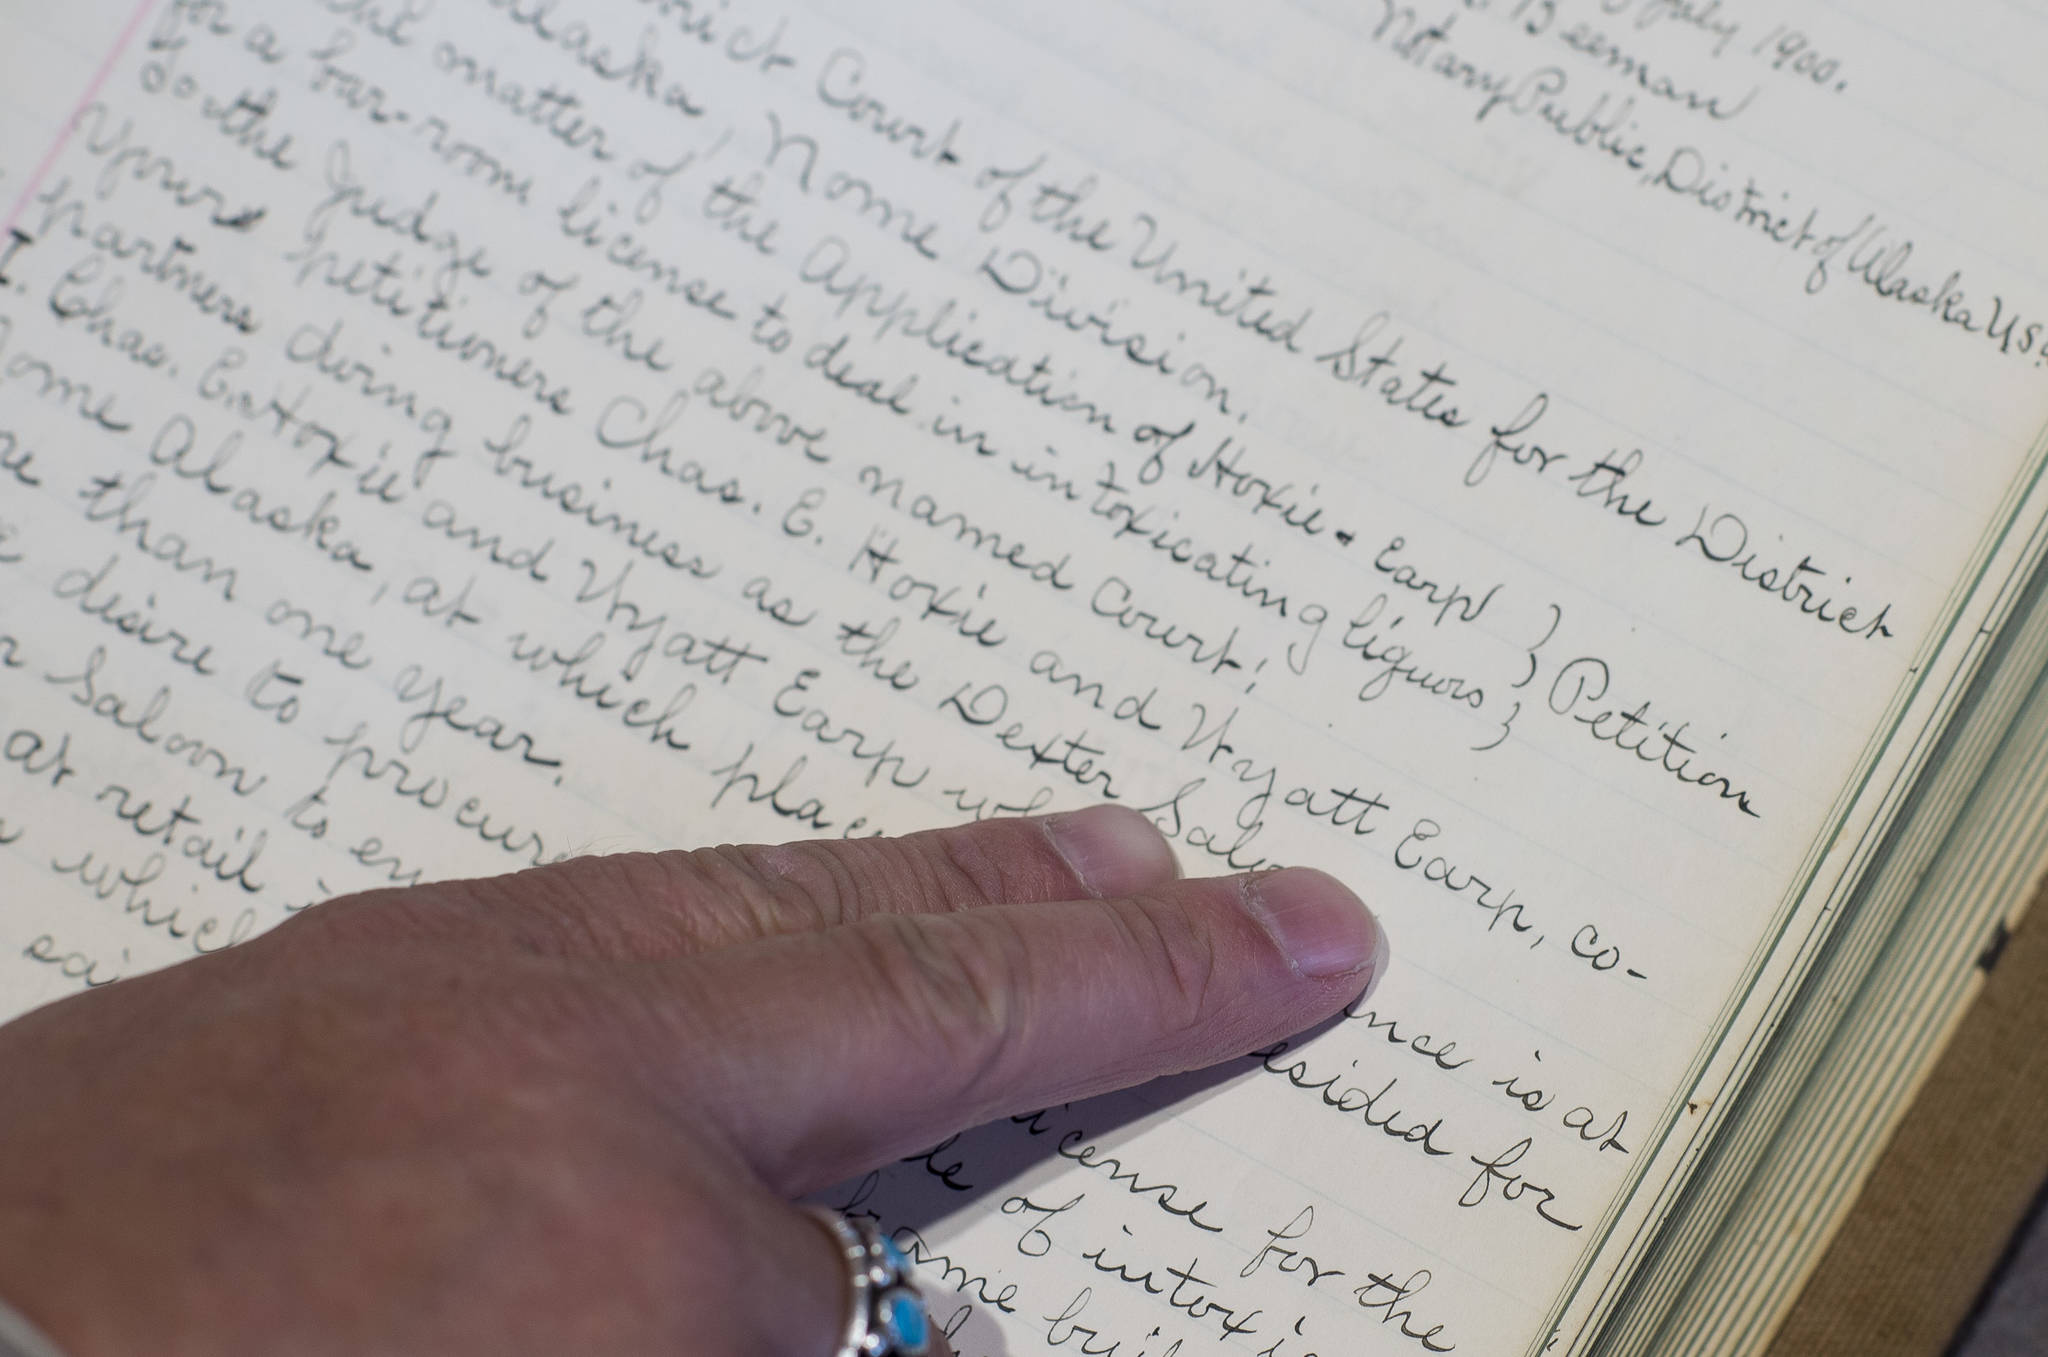 July 1900.
Beeman
Notary Public, District of Alaska U.S.
Court of the United States for the District
Alaska, Nome Division.
the matter of the Application of Hoxie & Earp } Petition
for a bar-room license to deal in intoxicating liquors }
To the Judge of the above named Court:
Your petitioners Chas. E. Hoxie and Wyatt Earp, co-
partners doing business as the Dexter
I. Chas. E. Hoxie and Wyatt Earp is at
Nome Alaska, at which for
than one year.
desire to procure license for the
Saloon to of
at retail frame
which